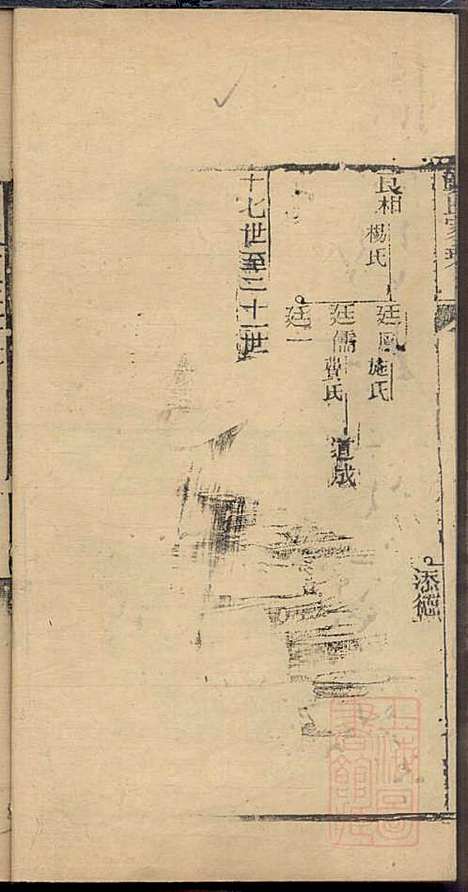 添德
良相 楊氏
廷鳳 施氏
廷儒 費氏
道成
廷一
十七世至二十一世